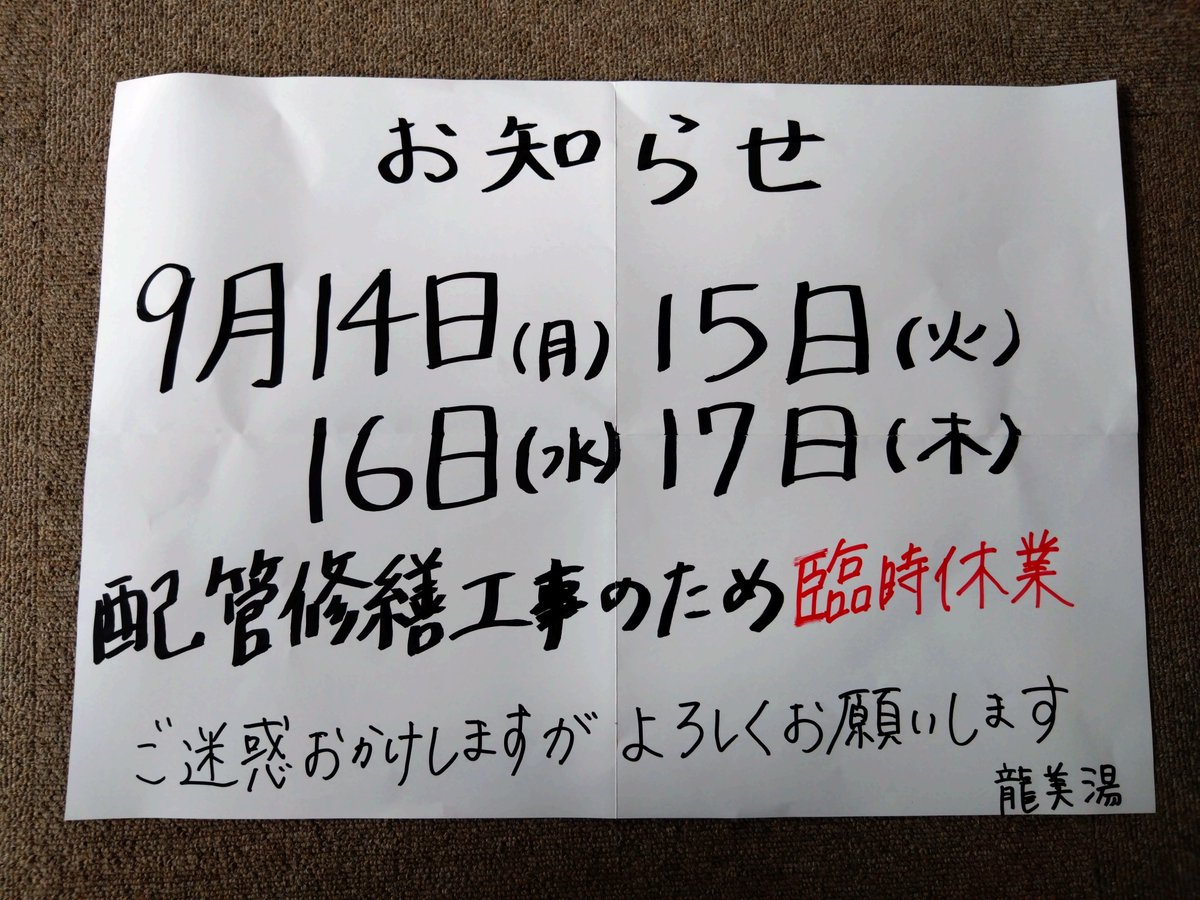 お知らせ
9月14日(月) 15日(火)
16日(水) 17日(木)
配管修繕工事のため臨時休業
ご迷惑おかけしますが よろしくお願いします
龍美湯